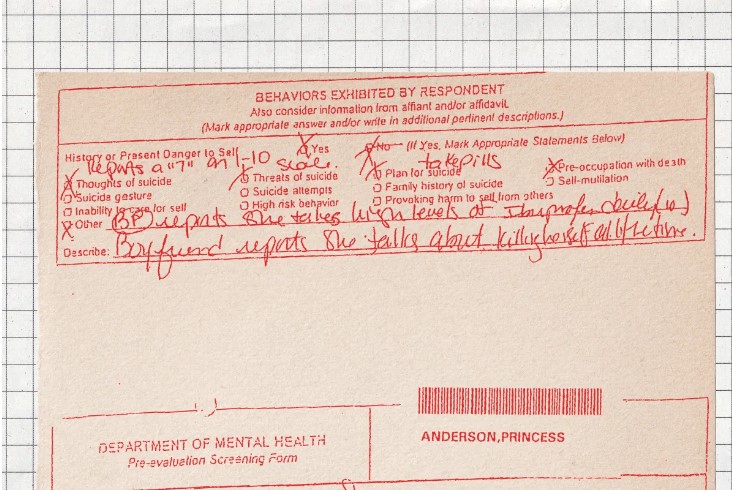 BEHAVIORS EXHIBITED BY RESPONDENT
Also consider information from affiant and/or affidavit.
(Mark appropriate answer and/or write in additional pertinent descriptions.)
History or Present Danger to Self Yes No (If Yes, Mark Appropriate Statements Below)
Reports a "7" on 1-10 scale. take pills
Thoughts of suicide Threats of suicide Plan for suicide Pre-occupation with death
Suicide gesture Suicide attempts Family history of suicide Self-mutilation
Inability to care for self High risk behavior Provoking harm to self from others
Other (BP) reports she takes high levels of Ibuprofen daily
Describe: Boyfriend reports she talks about killing herself all the time.
DEPARTMENT OF MENTAL HEALTH
Pre-evaluation Screening Form
ANDERSON,PRINCESS